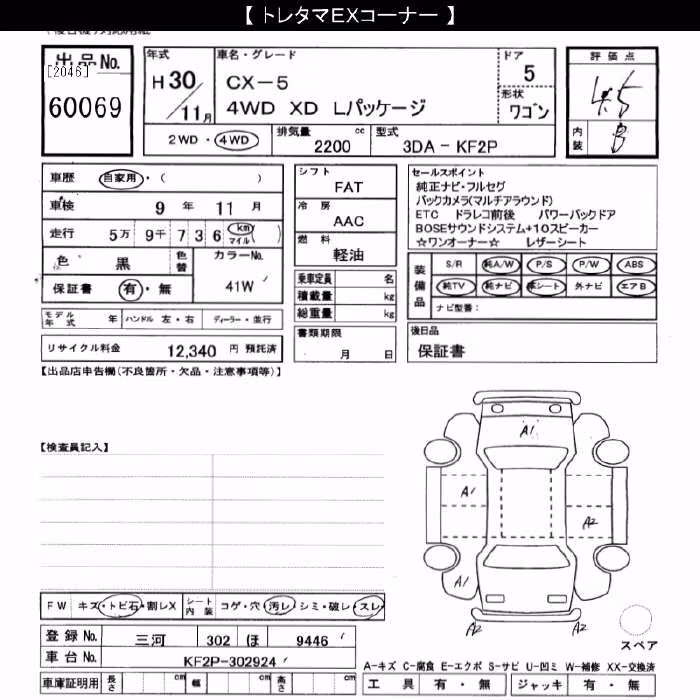 【 トレタマEXコーナー 】
出品No.
[2046]
60069
年式
H 30/11月
車名・グレード
CX-5
4WD XD Lパッケージ
ドア
5
形状
ワゴン
2WD・4WD
排気量
2200 cc
型式
3DA-KF2P
評価点
4.5
内装
B
車歴 自家用・( )
車検 9年 11月
走行 5万9千736 km マイル
色 黒
色替
カラーNo.
41W
保証書 有・無
モデル年式 年
ハンドル 左・右
ディーラー・並行
リサイクル料金 12,340 円 預託済
シフト
FAT
冷房
AAC
燃料
軽油
乗車定員 名
積載量 kg
総重量 kg
書類期限
月 日
セールスポイント
純正ナビ・フルセグ
バックカメラ(マルチアラウンド)
ETC ドラレコ前後 パワーバックドア
BOSEサウンドシステム+10スピーカー
☆ワンオーナー☆ レザーシート
装備品
S/R 純A/W P/S P/W ABS
純TV 純ナビ 革シート 外ナビ エアB
ナビ型番:
後日品
保証書
【出品店申告欄(不良箇所・欠品・注意事項等)】
【検査員記入】
A1
A1
A2
A1
A2
A2
スペア
FW キズ・トビ石・割レX
シート内装 コゲ・穴・汚レ・シミ・破レ・スレ
登録No. 三河 302 ほ 9446
車台No. KF2P-302924
車庫証明用 長さ cm 幅 cm 高さ cm
A-キズ C-腐食 E-エクボ S-サビ U-凹ミ W-補修 XX-交換済
工具 有・無 ジャッキ 有・無